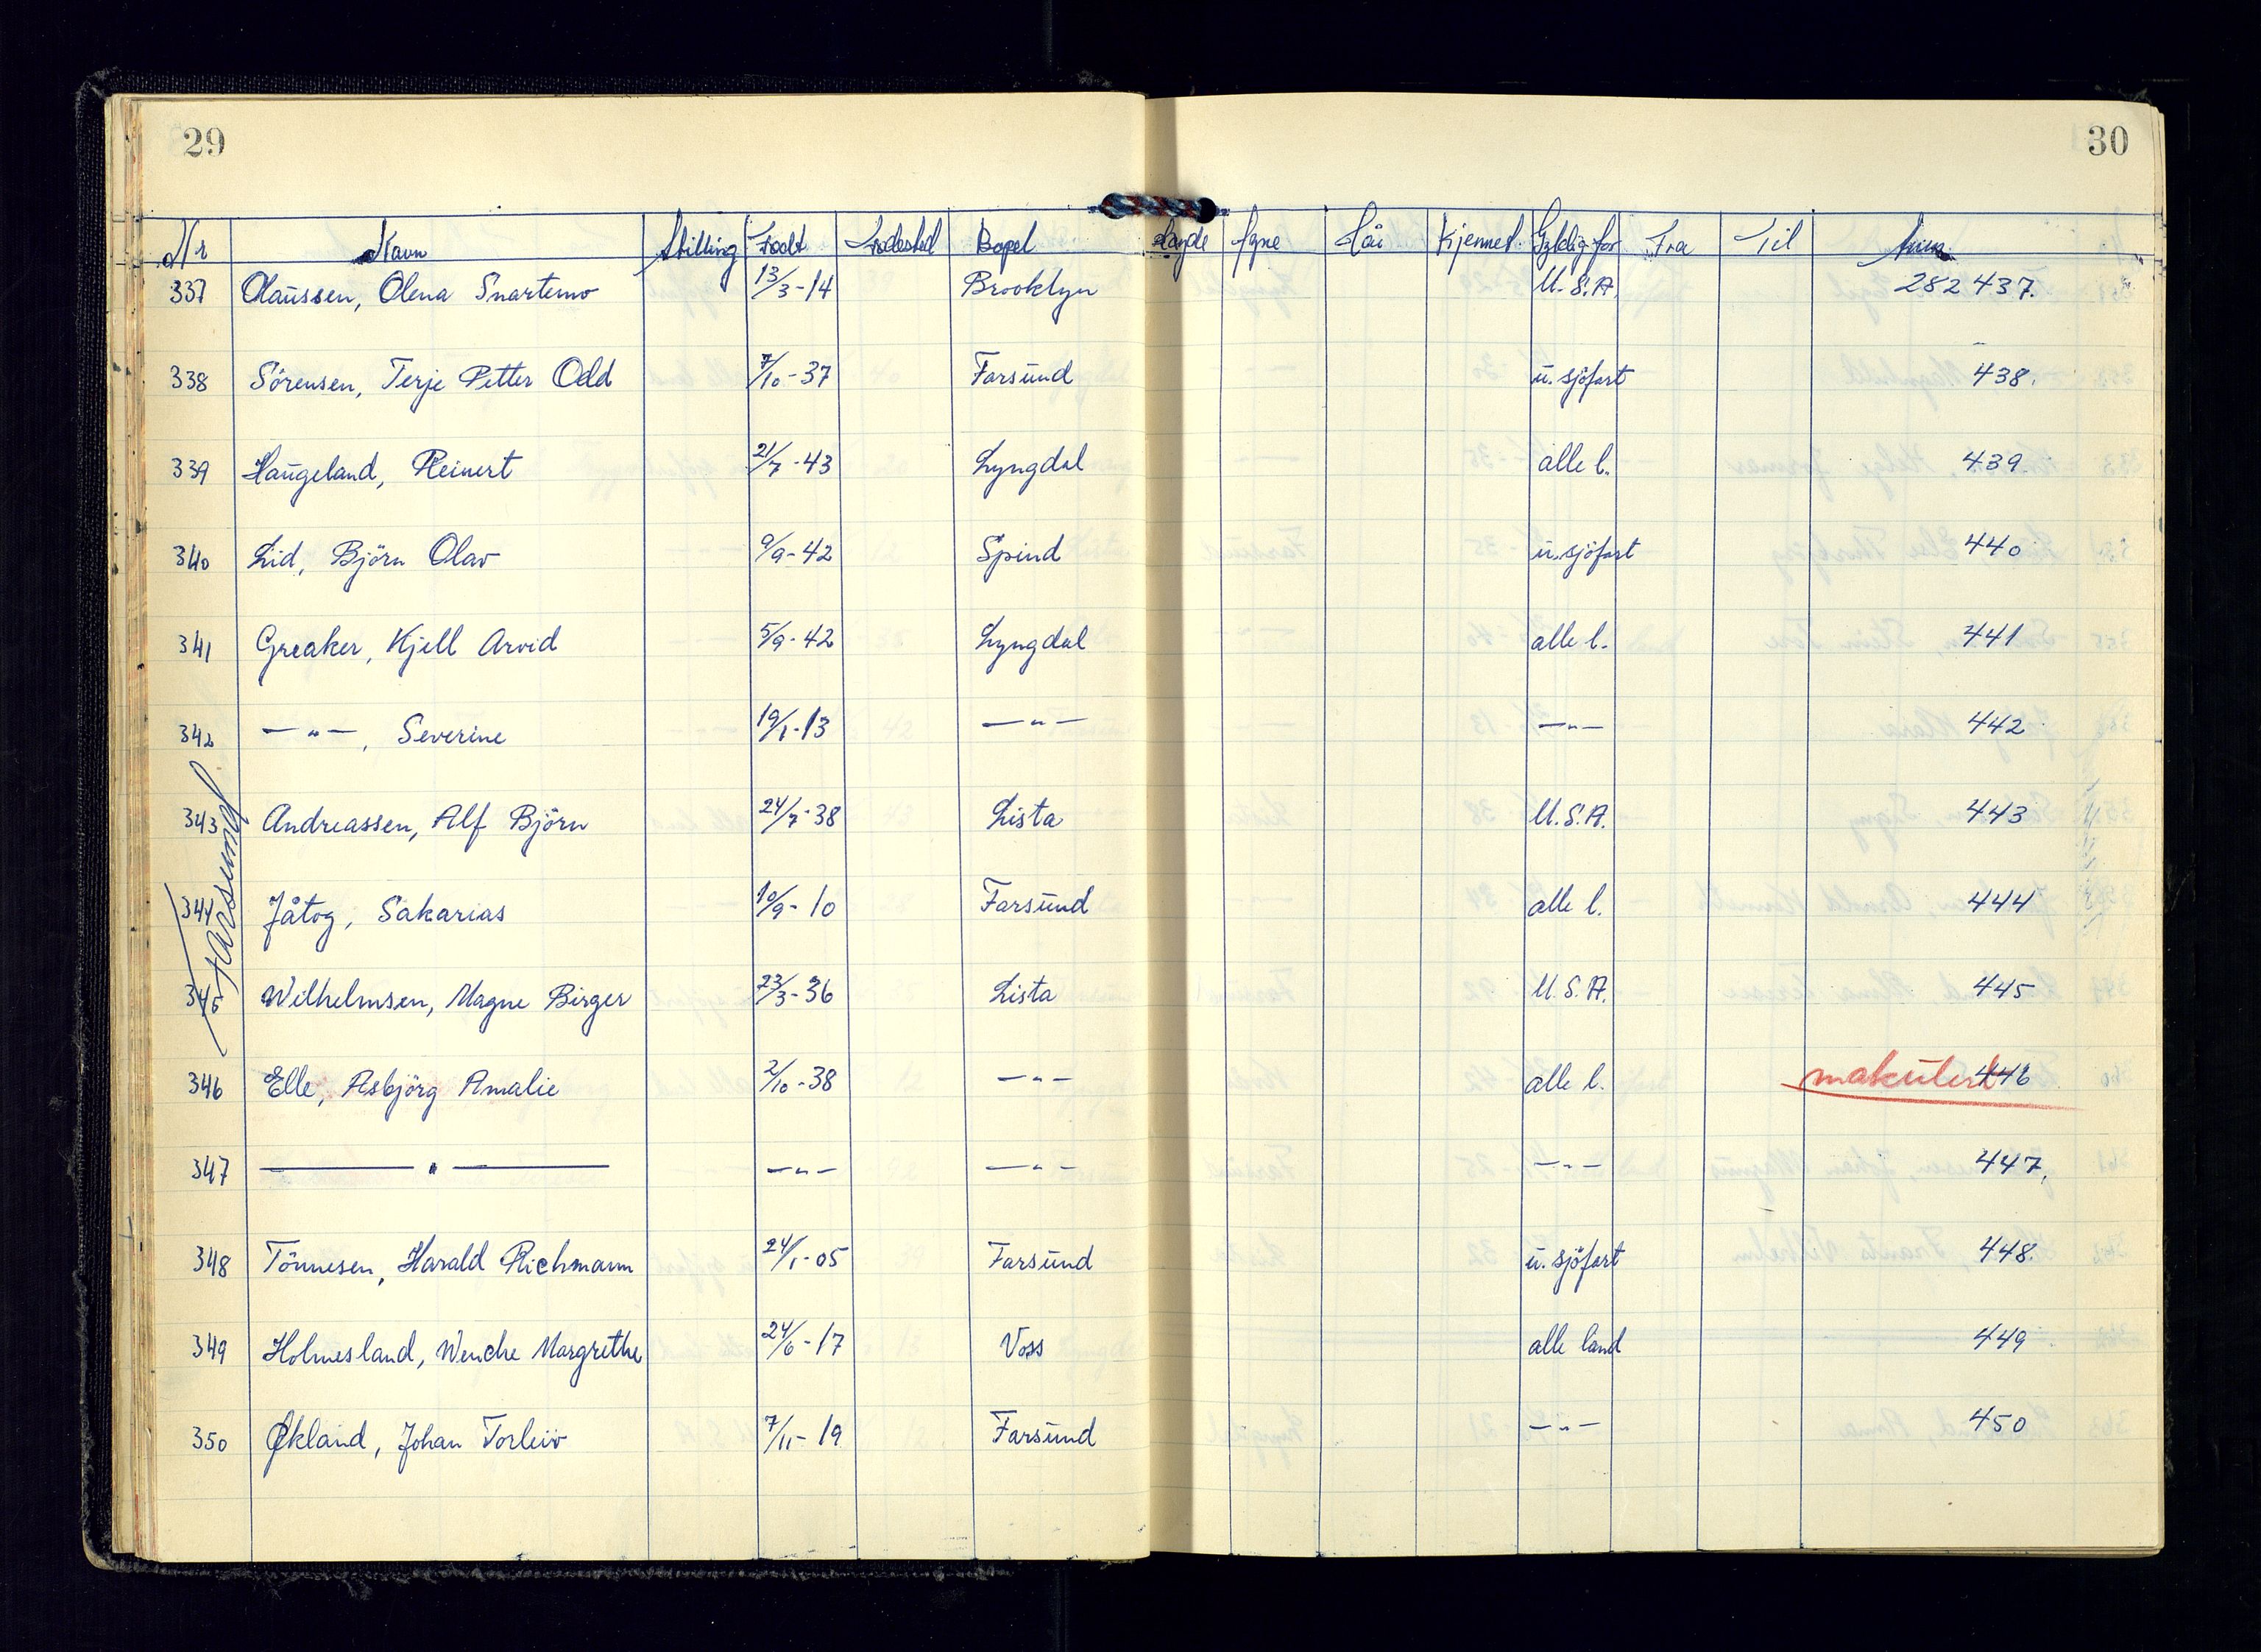 29
30
Nr Navn Stilling Født Fødested Bopel Høyde Øyne Hår Kjennet. Gyldig for Fra Til Anm.
337 Olaussen, Olena Snartemo 13/3-14 Brooklyn U.S.A. 282 437.
338 Sörensen, Terje Petter Odd 7/10-37 Farsund u. sjöfart 438.
339 Haugeland, Reinert 21/7-43 Lyngdal alle l. 439.
340 Lid, Björn Olav 9/9-42 Spind u. sjöfart 440
341 Greaker, Kjell Arvid 5/9-42 Lyngdal alle l. 441
342 —"—, Severine 19/1-13 —"— —"— 442
343 Andreassen, Alf Björn 24/7-38 Lista U.S.A. 443
Farsund
344 Jåtog, Sakarias 10/9-10 Farsund alle l. 444
345 Wilhelmsen, Magne Birger 23/3-36 Lista U.S.A. 445
346 Elle, Asbjörg Amalie 2/10-38 —"— alle l. makulert 446
347 —"— —"— —"— —"— 447,
348 Tönnesen, Harald Richmann 24/1-05 Farsund u. sjöfart 448.
349 Holmesland, Wenche Margrethe 24/6-17 Voss alle land 449
350 Økland, Johan Torleiv 7/11-19 Farsund —"— 450